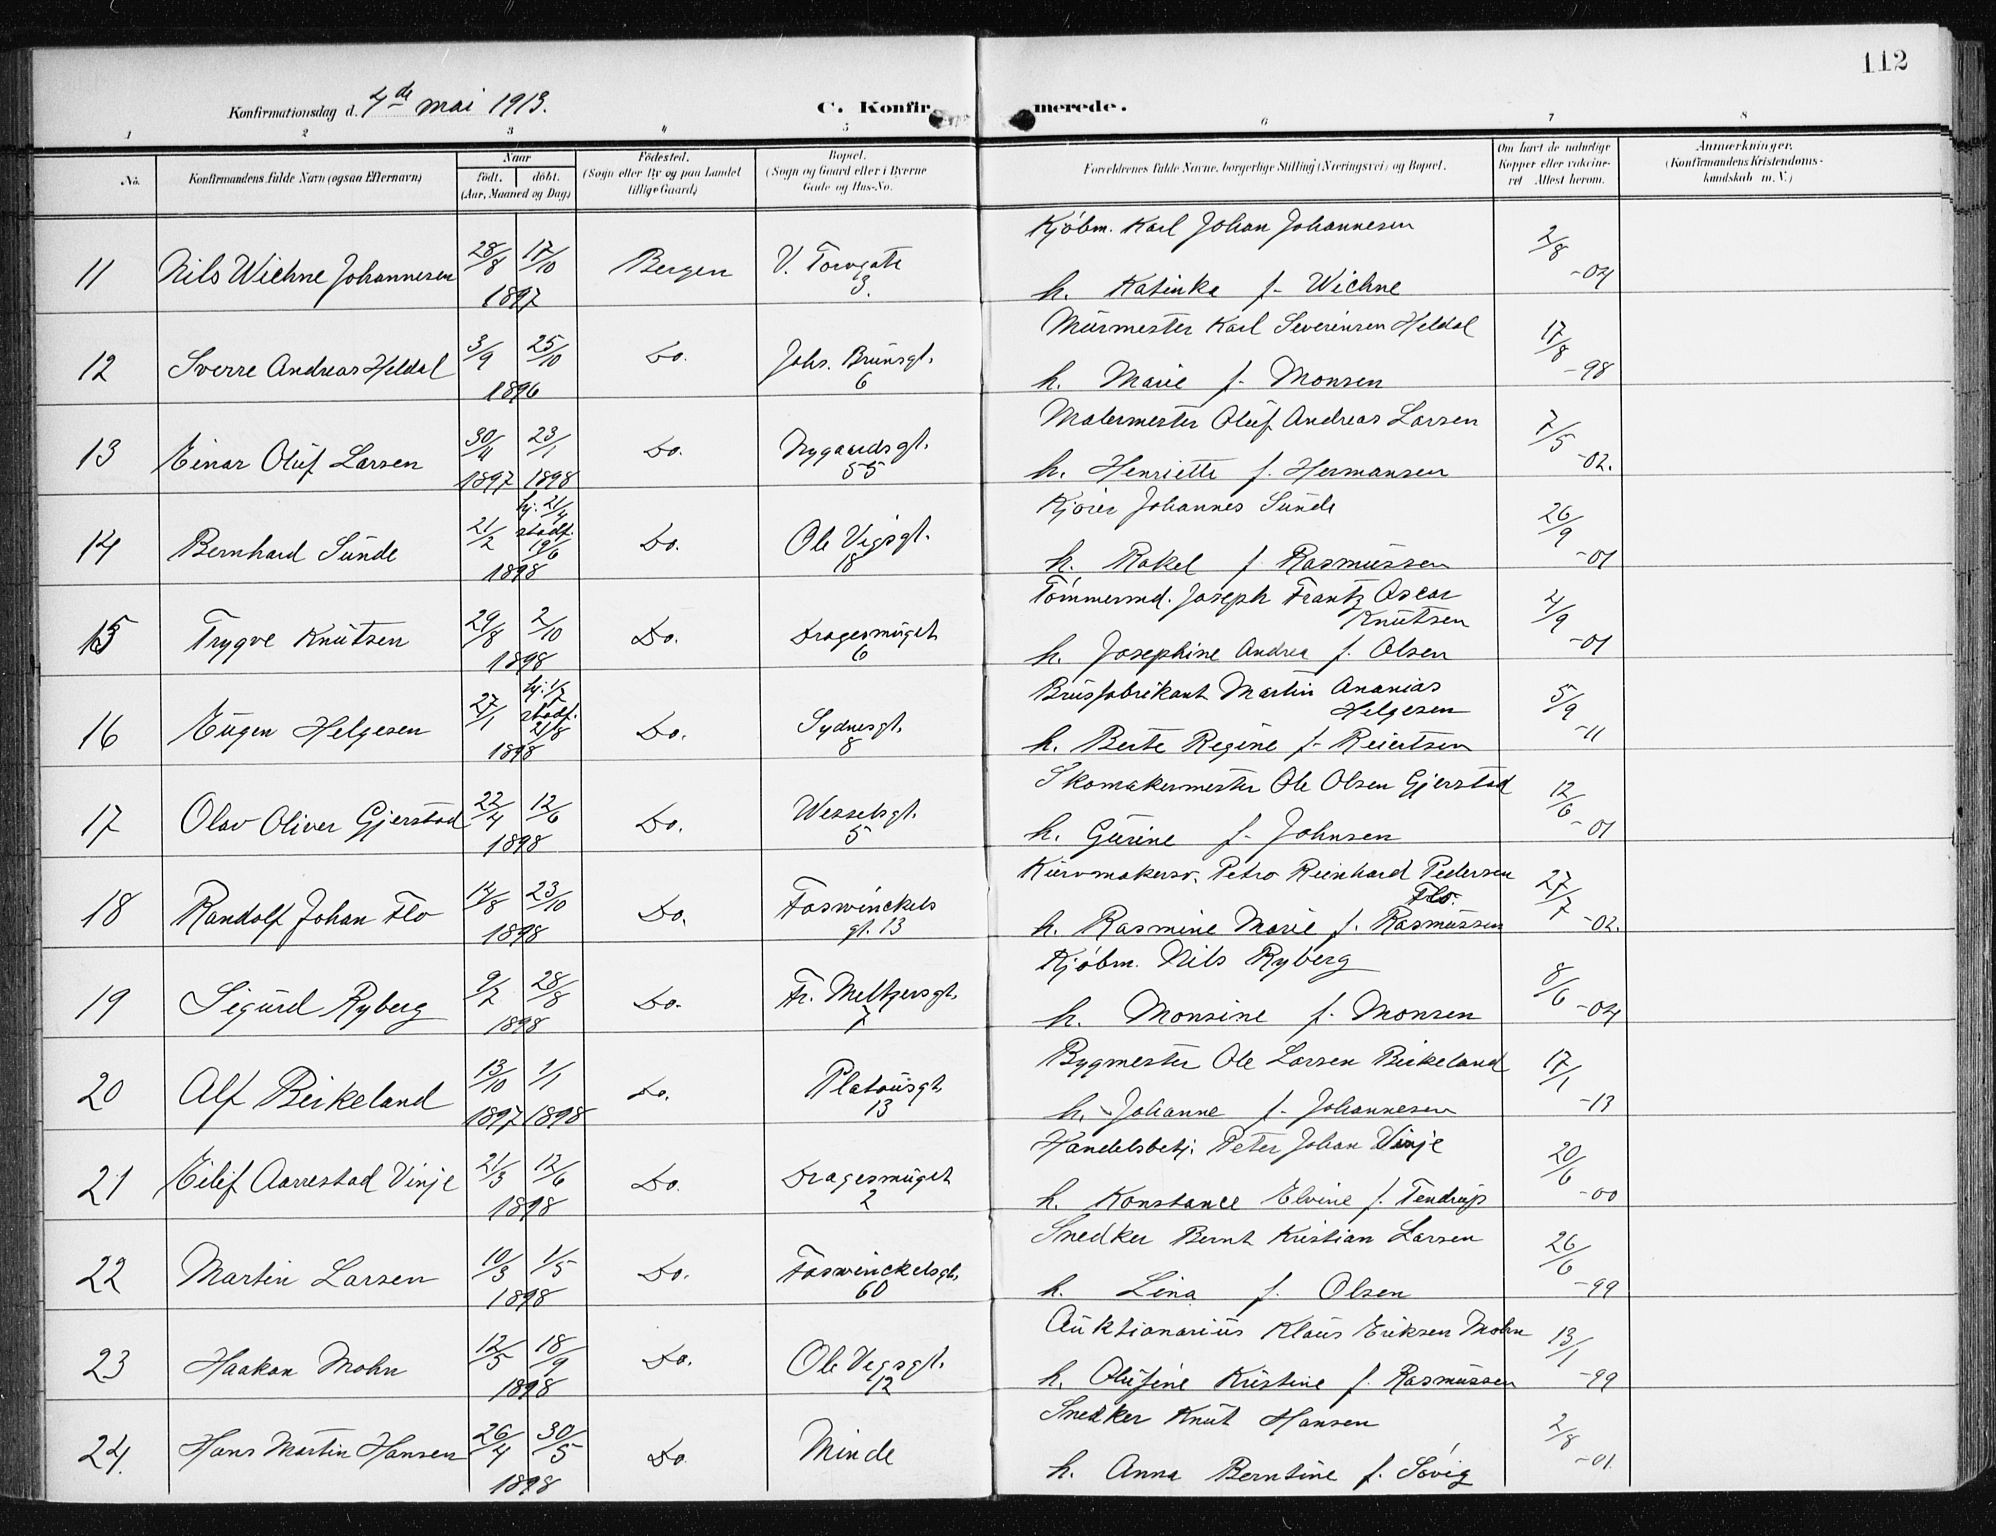 112
Konfirmationsdag d. 4de mai 1913. C. Konfirmerede.
1 2 3 4 5 6 7 8
No. Konfirmandens fulde Navn (ogsaa Efternavn) Naar født. døbt. (Aar, Maaned og Dag) Fødested. (Sogn eller By og paa Landet tillige Gaard) Bopæl. (Sogn og Gaard eller i Byerne Gade og Hus-No. Forældrenes fulde Navne, borgerlige Stilling (Næringsvei) og Bopæl. Om havt de naturlige Kopper eller vaksineret. Attest herom. Anmærkninger. (Konfirmandens Kristendomskundskab m. V.)
11 Nils Wichne Johannesen 28/8 17/10 1897 Bergen V. Torvgate 3. Kjøbm. Karl Johan Johannesen
h. Katinka f. Wichne 2/8 -04
12 Sverre Andreas Heldal 3/9 25/10 1896 Do. Johs. Brunsgt. 6 Murmester Karl Severinsen Heldal
h. Marie f. Monsen 17/8 -98
13 Einar Oluf Larsen 30/4 1897 23/1 1898 Do. Nygaardsgt. 55 Malermester Oluf Andreas Larsen
h. Henriette f. Hermansen 7/5 -02.
14 Bernhard Sunde 21/2 hj. 21/4 stadf. 19/6 1898 Do. Ole Vigsgt. 18 Kjører Johannes Sunde
h. Rakel f. Rasmussen 26/9 -01
15 Trygve Knutsen 29/8 2/10 1898 Do. Dragesmuget 6 Tømmermd. Joseph Frantz Oscar Knutsen
h. Josephine Andrea f. Olsen 4/9 -01
16 Eugen Helgesen 27/1 hj. 1/2 stadf. 21/8 1898 Do. Sydnesgt. 8 Brusfabrikant Martin Ananias Helgesen
h. Berte Regine f. Reiertsen 5/9 -11
17 Olav Oliver Gjerstad 22/4 12/6 1898 Do. Wesselsgt. 5 Skomakermester Ole Olsen Gjerstad
h. Gurine f. Johnsen 12/6 -01
18 Randolf Johan Flo 14/8 23/10 1898 Do. Foswinckels gt. 13 Kurvmakersv. Petro Reinhard Pedersen Flo.
h. Rasmine Marie f. Rasmussen 27/7 -02.
19 Sigurd Ryberg 9/7 28/8 1898 Do. Fr. Meltzersgt. 7 Kjøbm. Nils Ryberg
h. Monsine f. Monsen 8/6 -04
20 Alf Birkeland 13/10 1897 1/1 1898 Do. Platousgt. 13 Bygmester Ole Larsen Birkeland
h. Johanne f. Johannesen 17/1 -13
21 Eilif Aarrestad Vinje 21/3 12/6 1898 Do. Dragesmuget 2 Handelsbetj. Peter Johan Vinje
h. Konstance Elvine f. Tendrup 20/6 -00
22 Martin Larsen 10/3 1/5 1898 Do. Foswinckelsgt. 60 Snedker Bernt Kristian Larsen
h. Lina f. Olsen 26/6 -99
23 Haakon Mohn 12/5 18/9 1898 Do. Ole Vigsgt. 12 Auktionarius Klaus Eriksen Mohn
h. Olufine Kristine f. Rasmussen 13/1 -99
24. Hans Martin Hansen 26/4 30/5 1898 Do. Minde Snedker Knut Hansen
h. Anna Berntine f. Søvig 2/8 -01